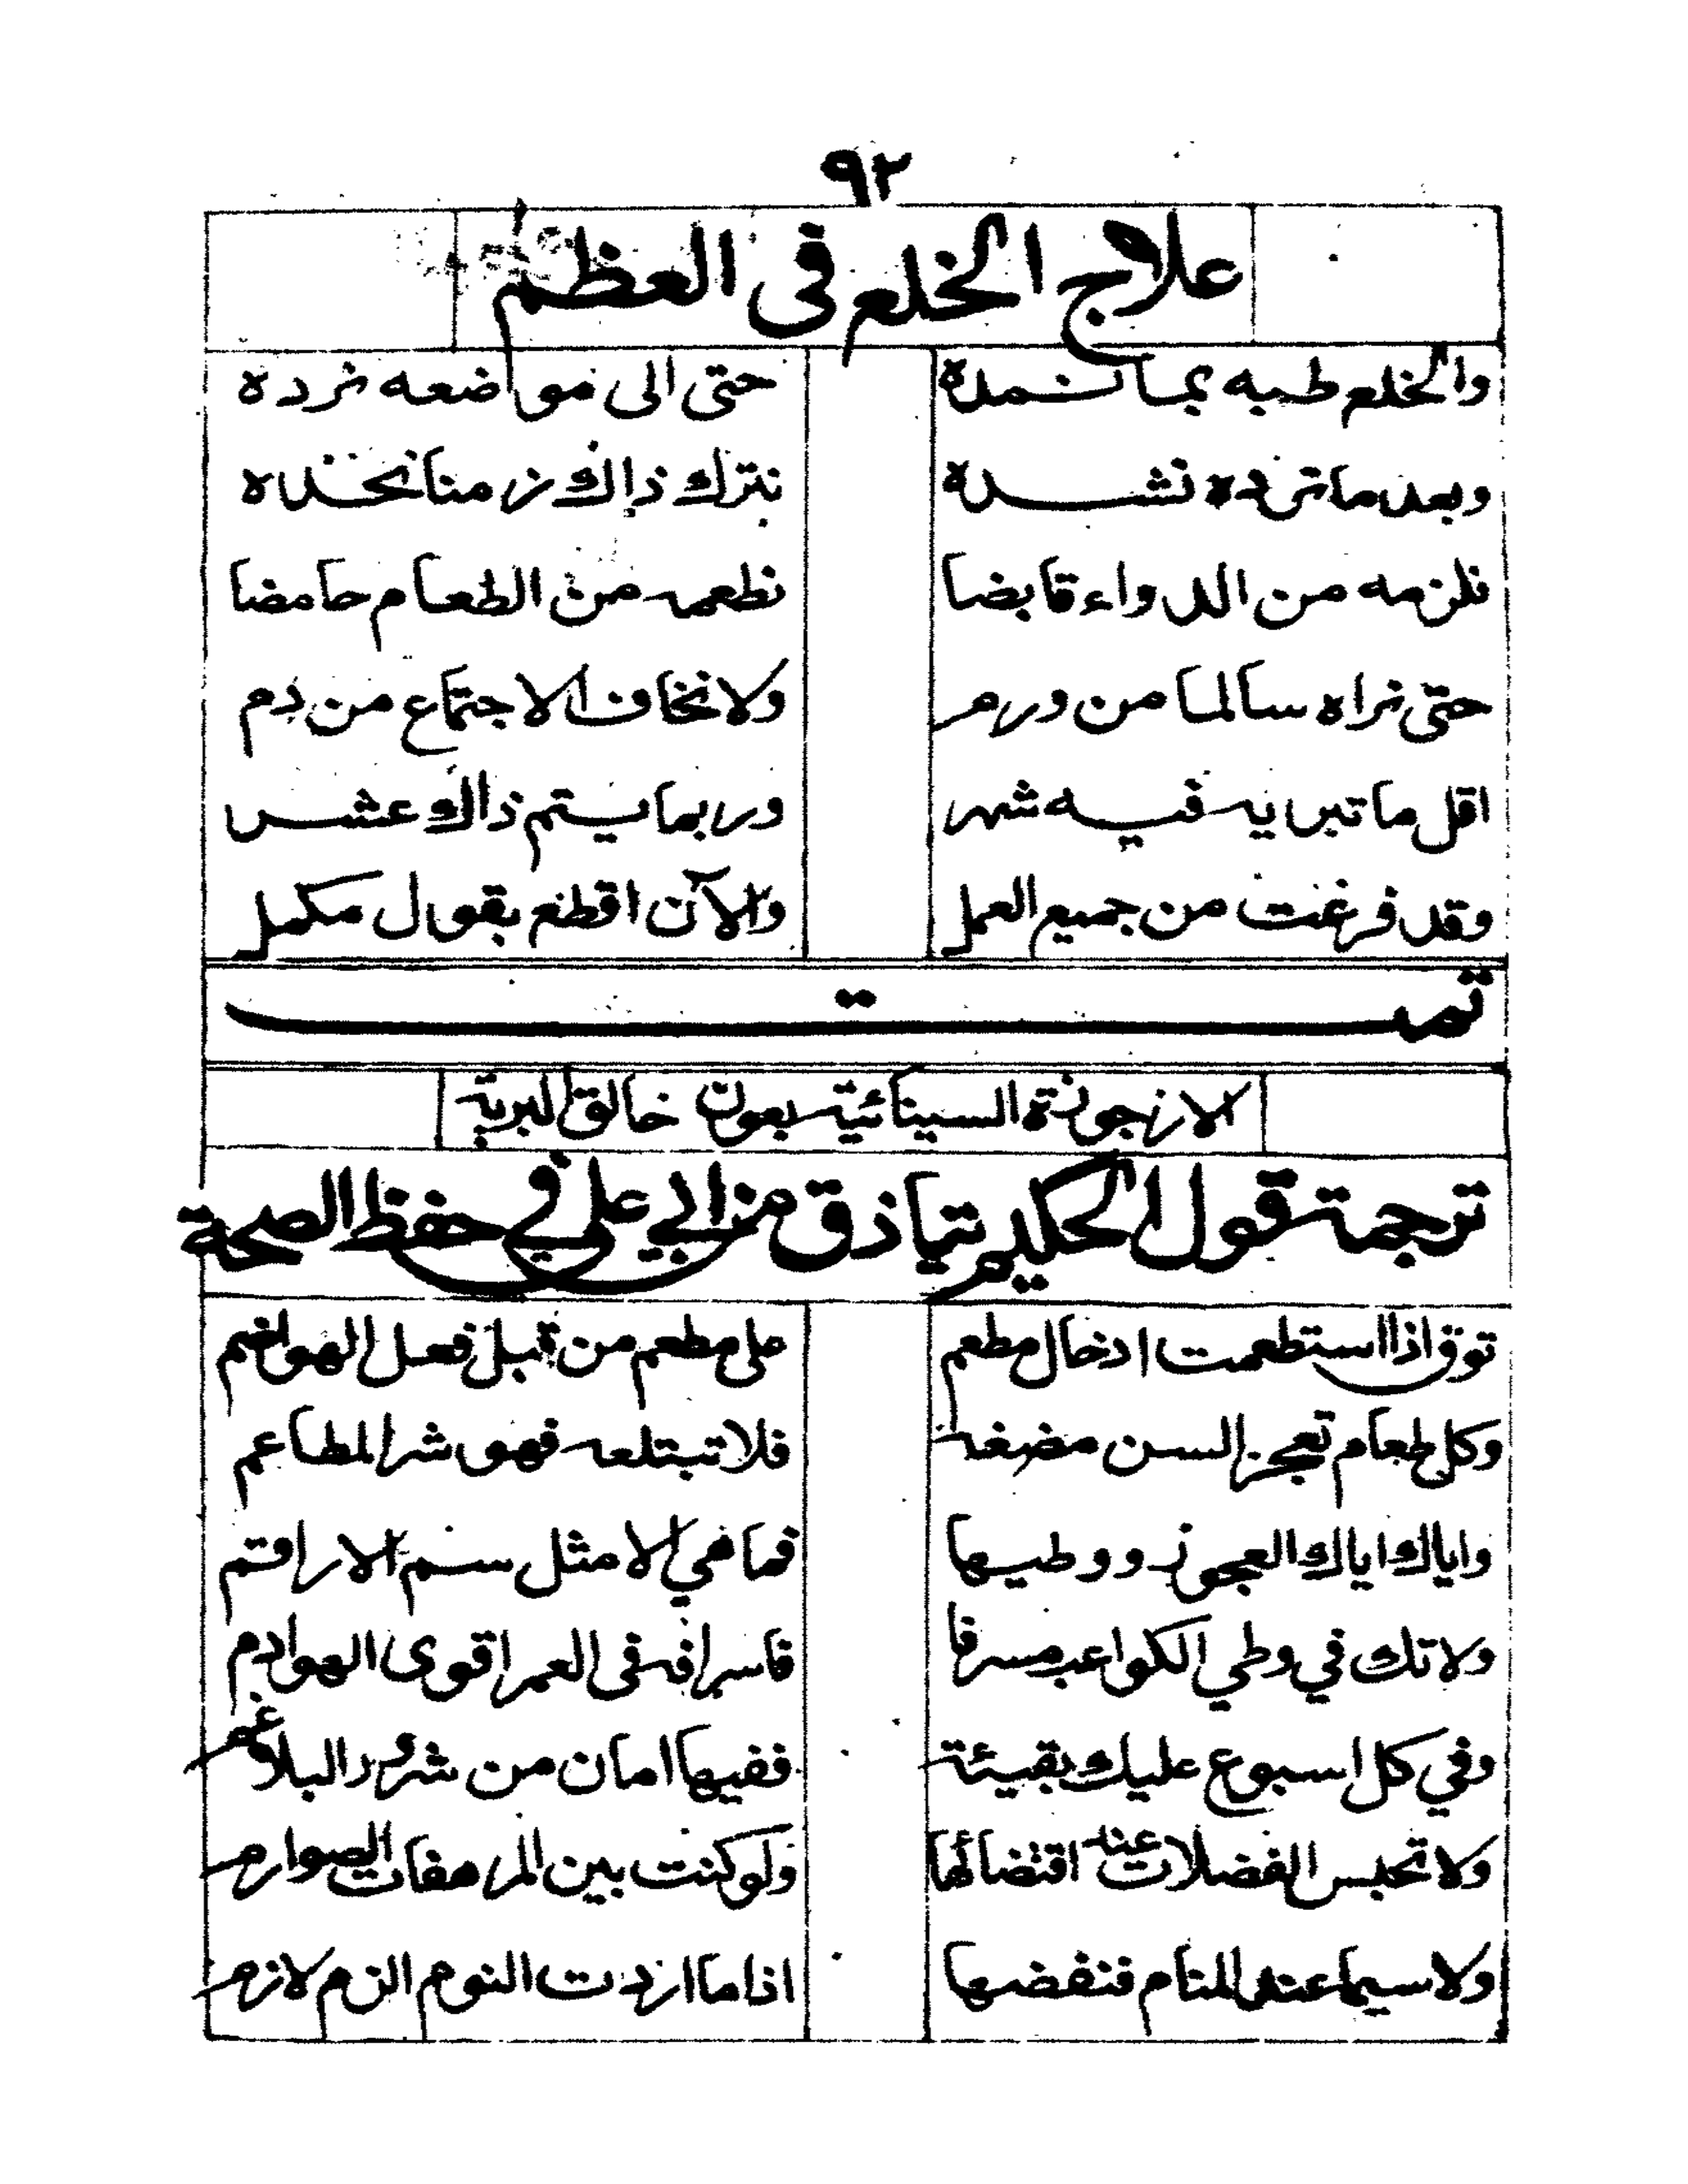 ٩٢
علاج الخلع فى العظم
والخلع طبه بما نمده حتى الى مواضعه نرده
وبعد ما ترده نشده نترك ذاك زمنا نحده
نلزمه من الدواء قابضا نطعمه من الطعام حامضا
حتى نراه سالما من ورم ولا نخاف الاجتماع من دم
اقل ما تبريه فيه شهر وربما يستم ذاك عشر
وقد فرغت من جميع العمل والآن اقطع بقول مكمل
تمت
الارجوزة السينائية بعون خالق البرية
ترجمة قول الحكيم تياذق من ابي علي في حفظ الصحة
توق اذا استطعمت ادخال مطعم على مطعم من قبل فعل الهواضم
وكل طعام تعجز السن مضغه فلا تبتلعه فهو شر المطاعم
واياك اياك العجوز ووطيها فما هي الا مثل سم الاراقم
ولا تك في وطي الكواعب مسرفا فاسرافه فى العمر اقوى الهوادم
وفي كل اسبوع عليك بقيئة ففيها امان من شرور البلاغم
ولا تحبس الفضلات عند اقتضائها ولو كنت بين المرهفات الصوارم
ولا سيما عند المنام فنفضها اذا ما اردت النوم الزم لازم